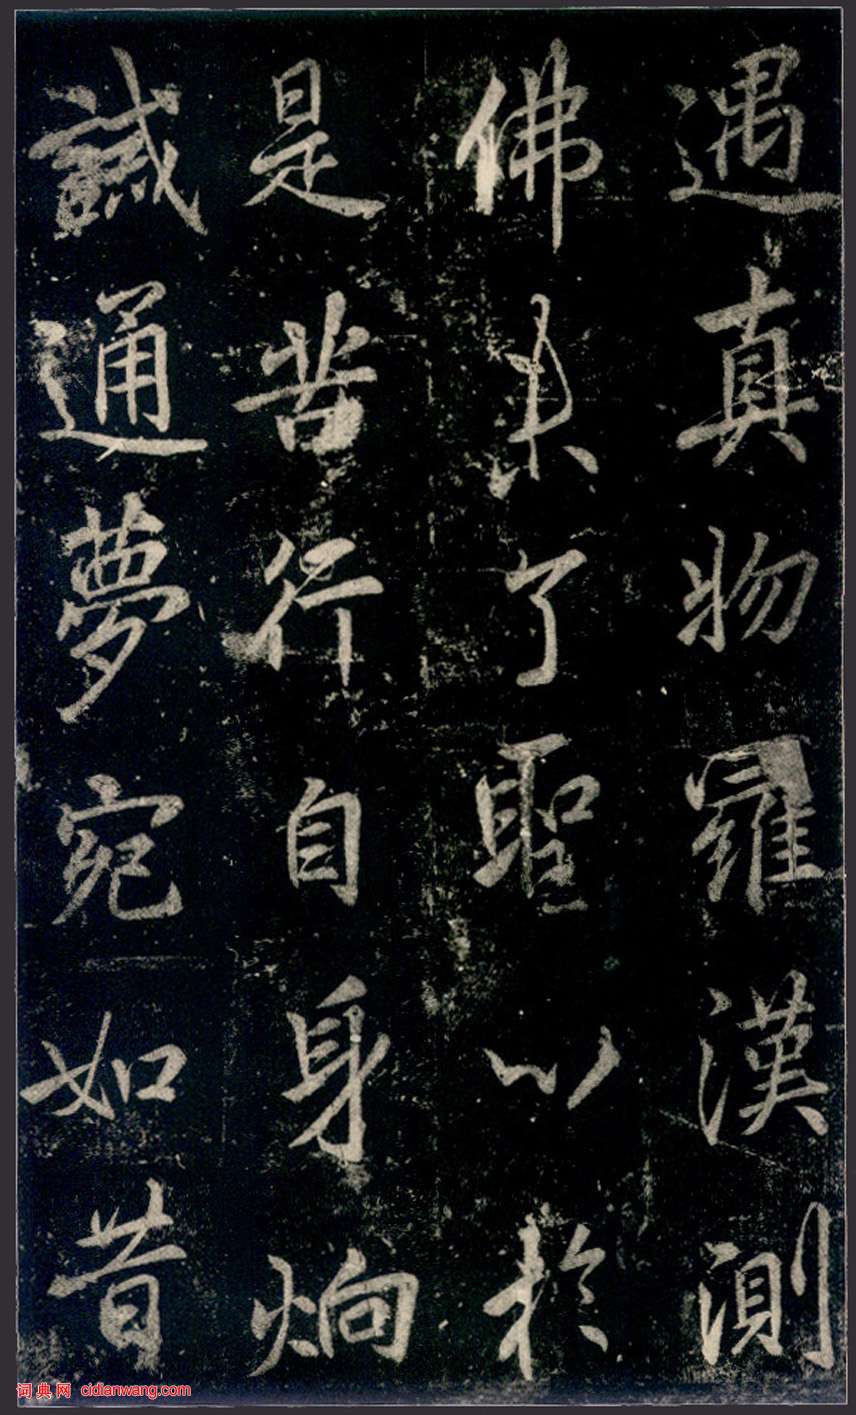 遇真物羅漢測
佛了聖於
是苦行自身炯
誡通夢宛如昔
词典网 cidianwang.com